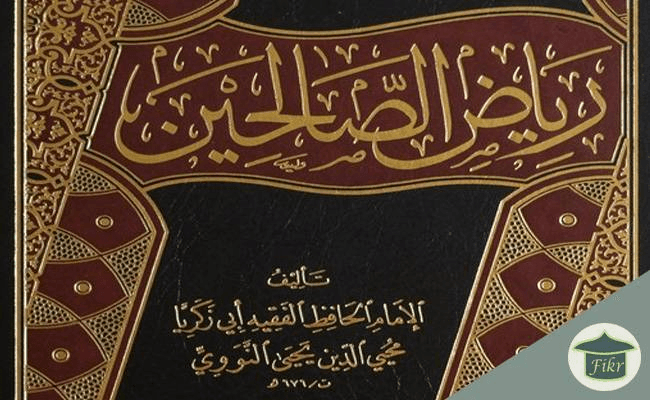 رياض الصالحين
تأليف
الإمام الحافظ الفقيه أبي زكريا
محيي الدين يحيى النووي
ت/٦٧٦هـ
Fikr